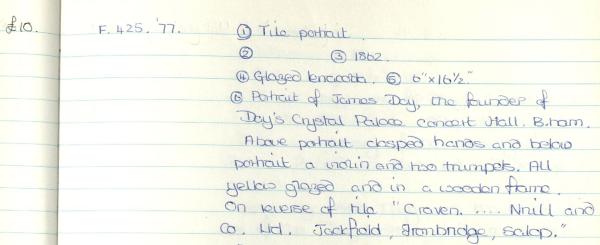 £10. F. 425. '77. ① Tile portrait.
② ③ 1862.
④ Glazed terracotta. ⑤ 6" x 16½."
⑥ Portrait of James Day, the founder of
Day's Crystal Palace Concert Hall, B.ham.
Above portrait clasped hands and below
portrait a violin and two trumpets. All
yellow glazed and in a wooden frame.
On reverse of tile "Craven. .... Nnill and
Co. Ltd. Jackfield, Ironbridge, Salop."